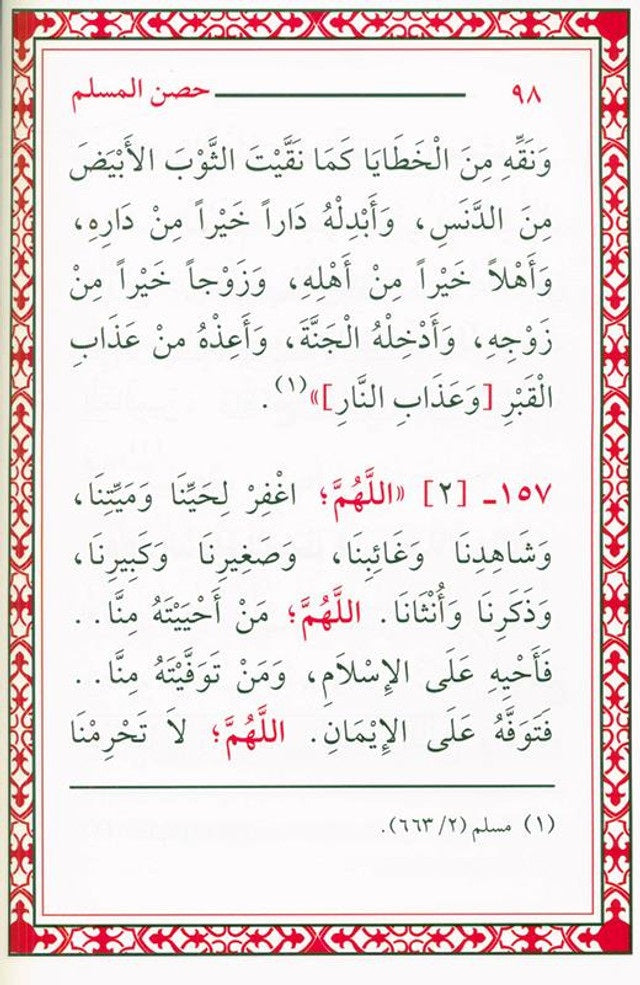 ٩٨ حصن المسلم
وَنَقِّهِ مِنَ الْخَطَايَا كَمَا نَقَّيْتَ الثَّوْبَ الأَبْيَضَ
مِنَ الدَّنَسِ، وَأَبْدِلْهُ دَاراً خَيْراً مِنْ دَارِهِ،
وَأَهْلاً خَيْراً مِنْ أَهْلِهِ، وَزَوْجاً خَيْراً مِنْ
زَوْجِهِ، وَأَدْخِلْهُ الْجَنَّةَ، وَأَعِذْهُ مِنْ عَذَابِ
الْقَبْرِ [وَعَذَابِ النَّارِ]»(١).
١٥٧ـ [٢] «اللَّهُمَّ؛ اغْفِرْ لِحَيِّنَا وَمَيِّتِنَا،
وَشَاهِدِنَا وَغَائِبِنَا، وَصَغِيرِنَا وَكَبِيرِنَا،
وَذَكَرِنَا وَأُنْثَانَا. اللَّهُمَّ؛ مَنْ أَحْيَيْتَهُ مِنَّا..
فَأَحْيِهِ عَلَى الإِسْلَامِ، وَمَنْ تَوَفَّيْتَهُ مِنَّا..
فَتَوَفَّهُ عَلَى الإِيْمَانِ. اللَّهُمَّ؛ لاَ تَحْرِمْنَا
(١) مسلم (٢/ ٦٦٣).